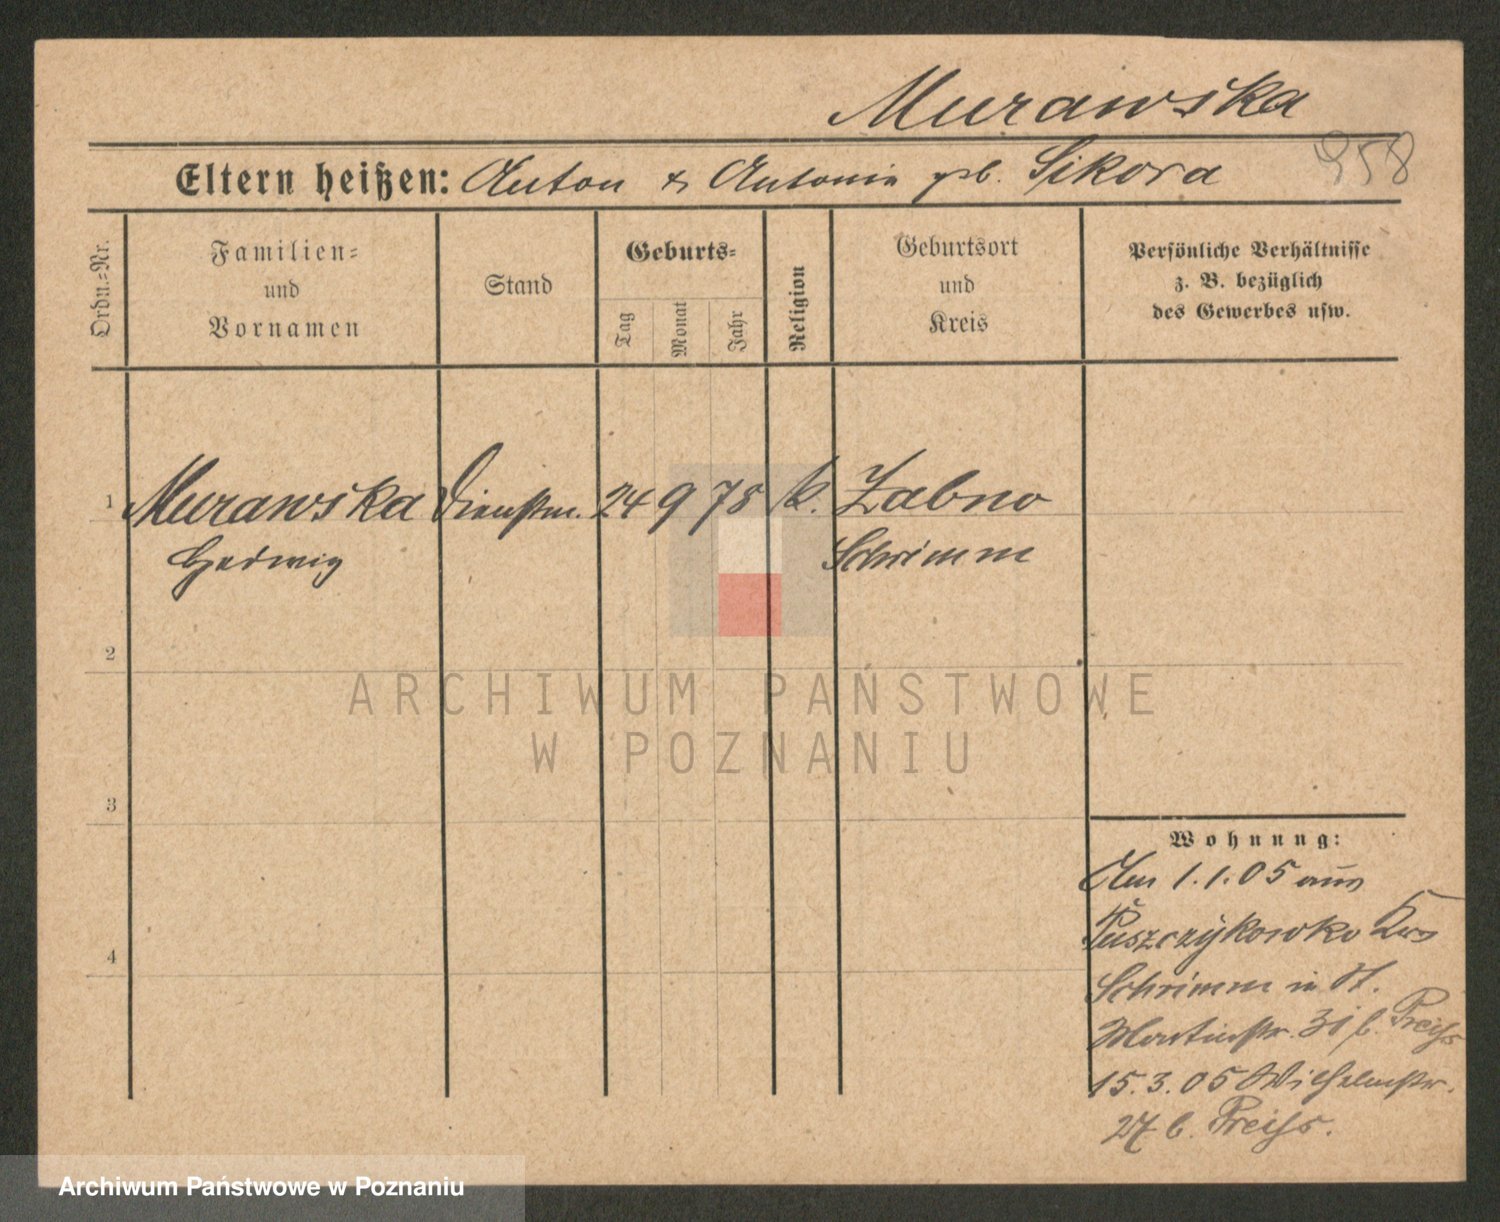 Murawska
958
Eltern heißen: Anton & Antonie geb. Sikora
Ordn.-Nr.
Familien-
und
Vornamen
Stand
Geburts-
Tag
Monat
Jahr
Religion
Geburtsort
und
Kreis
Persönliche Verhältnisse
z. B. bezüglich
des Gewerbes usw.
1 Murawska Dienstm. 24 9 78 k. Zabno
Hedwig Schrimm
2
ARCHIWUM PAŃSTWOWE
W POZNANIU
3
Wohnung:
Am 1.1.05 aus
Puszczykowko Krs
4
Schrimm in St.
Martinstr. 31 b. Preiss
15.3.05 Wilhelmstr.
27 b. Preiss.
Archiwum Państwowe w Poznaniu